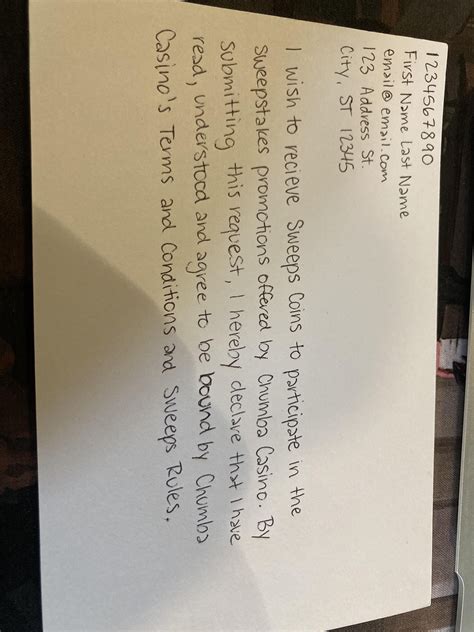 1234567890
First Name Last Name
email@email.com
123 Address St.
City, ST 12345
I wish to recieve Sweeps Coins to participate in the
sweepstakes promotions offered by Chumba Casino. By
submitting this request, I hereby declare that I have
read, understood and agree to be bound by Chumba
Casino's Terms and Conditions and Sweeps Rules.